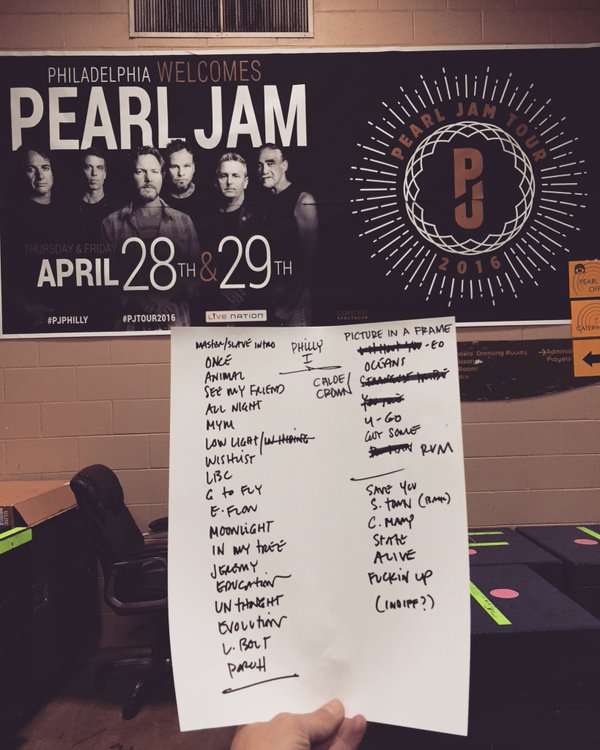 PHILADELPHIA WELCOMES
PEARL JAM
THURSDAY & FRIDAY
APRIL 28TH & 29TH
#PJPHILLY #PJTOUR2016 LIVE NATION COMCAST SPECTACOR
PEARL JAM TOUR
PJ
2016
PEARL
OFF
CATERIN
Dressing Rooms
Administ
Players'
MASTER/SLAVE INTRO
ONCE
ANIMAL
SEE MY FRIEND
ALL NIGHT
MYM
LOW LIGHT/IN HIDING
WISHLIST
LBC
G TO FLY
E. FLOW
MOONLIGHT
IN MY TREE
JEREMY
EDUCATION
UNTHOUGHT
EVOLUTION
L. BOLT
PORCH
PHILLY
I
CHLOE/
CROWN
PICTURE IN A FRAME
WITHOUT YOU - EO
OCEANS
YOU YOU
4-GO
GOT SOME
RVM
SAVE YOU
S. TOWN
C. MAMP
STATE
ALIVE
FUCKIN UP
(INDIFF?)